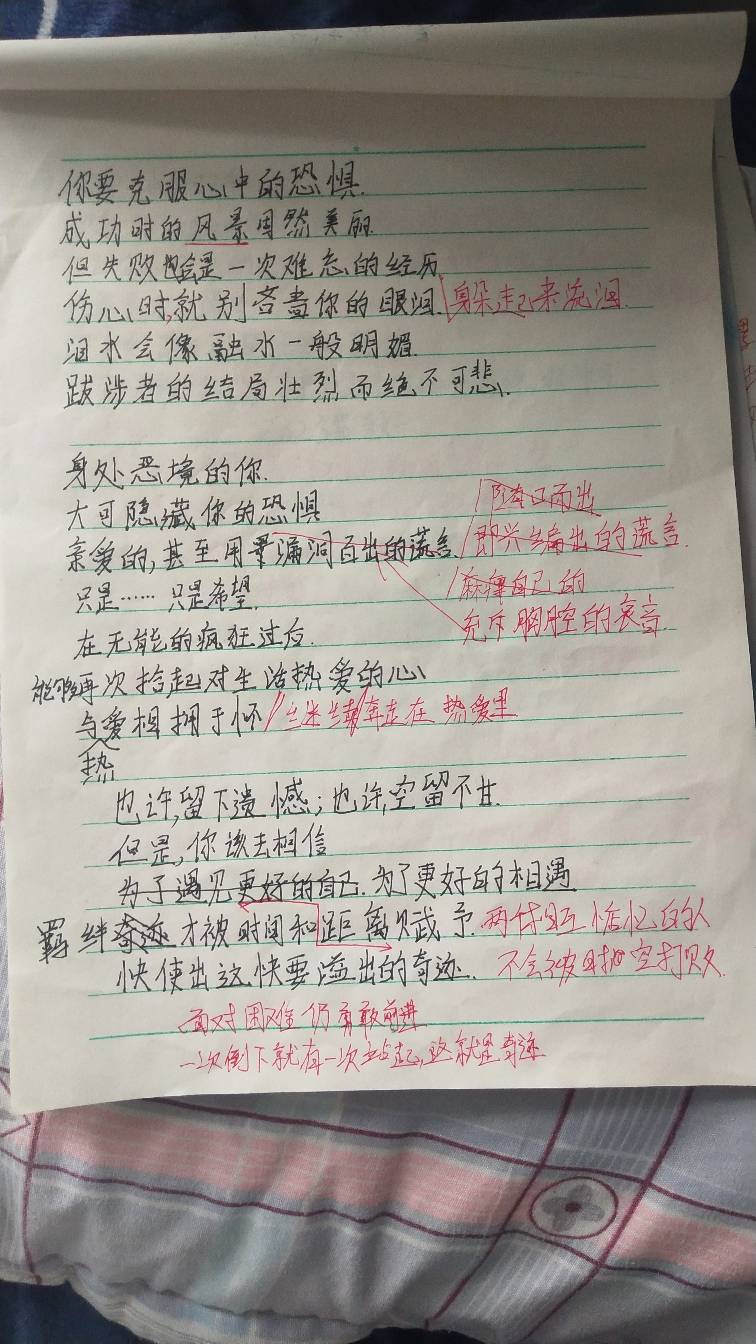 你要克服心中的恐惧.
成功时的风景固然美丽.
但失败也会是一次难忘的经历
伤心时,就别吝啬你的眼泪. 躲起来流泪.
泪水会像融水一般明媚.
跋涉者的结局壮烈而绝不可悲.
身处恶境的你.
大可隐藏你的恐惧 随口而出
亲爱的,甚至用漏洞百出的谎言. 即兴编出的谎言.
只是…… 只是希望. 麻痹自己的
在无能的疯狂过后. 充斥胸腔的哀音.
能够再次拾起对生活热爱的心
与爱相拥于怀 奔走在热爱里
热
也许,留下遗憾;也许,空留不甘.
但是,你该去相信
为了遇见更好的自己. 为了更好的相遇
羁绊奇迹才被时间和距离赋予. 两个相互惦记的人
快使出这快要溢出的奇迹. 不会被时空打败.
面对困难仍勇敢前进
一次倒下就有一次站起,这就是奇迹